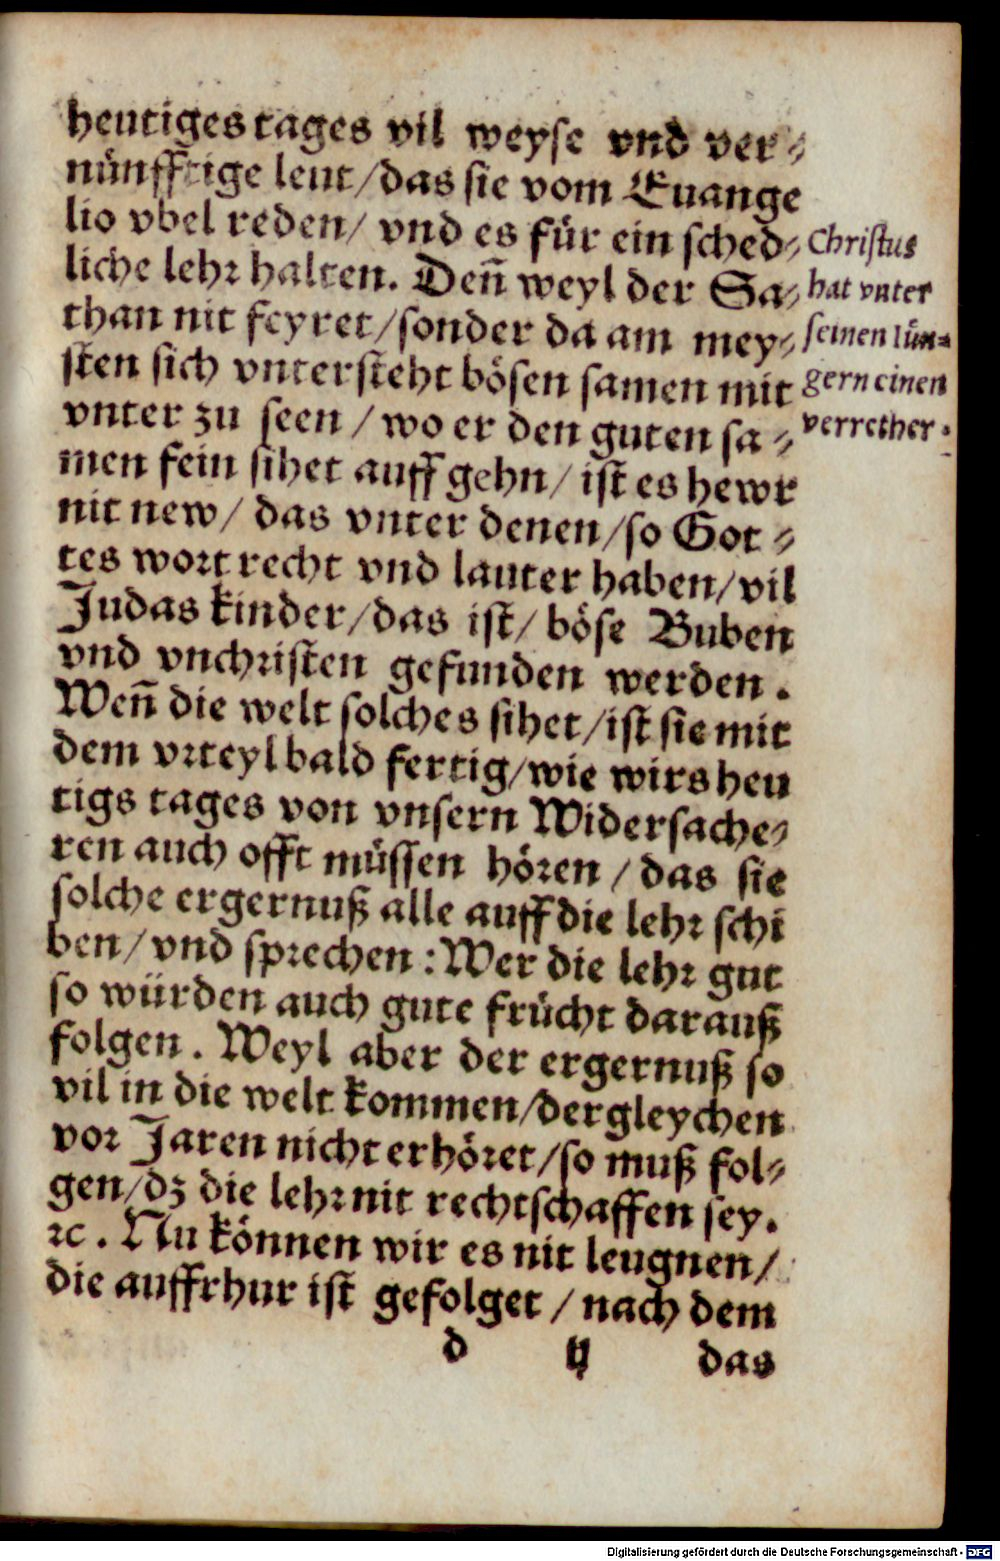 heutiges tages vil weyse vnd ver⸗
nünfftige leut/das sie vom Euange
lio vbel reden/ vnd es für ein sched⸗
liche lehr halten. Deñ weyl der Sa⸗
than nit feyret/sonder da am mey⸗
sten sich vntersteht bösen samen mit
vnter zu seen / wo er den guten sa⸗
men fein sihet auff gehn/ ist es hewr
nit new/ das vnter denen/so Got⸗
tes wort recht vnd lauter haben/vil
Judas kinder/das ist/ böse Buben
vnd vnchristen gefunden werden.
Weñ die welt solches sihet/ist sie mit
dem vrteyl bald fertig/wie wirs heu
tigs tages von vnsern Widersache⸗
ren auch offt müssen hören / das sie
solche ergernuß alle auff die lehr schi
ben/vnd sprechen: Wer die lehr gut
so würden auch gute frücht darauß
folgen. Weyl aber der ergernuß so
vil in die welt kommen/dergleychen
vor Jaren nicht erhöret/so muß fol⸗
gen/dz die lehr nit rechtschaffen sey.
ꝛc. Nu können wir es nit leugnen/
die auffrhur ist gefolget / nach dem
d ij das
Christus
hat vnter
seinen Jün⸗
gern einen
verrether.
Digitalisierung gefördert durch die Deutsche Forschungsgemeinschaft - DFG